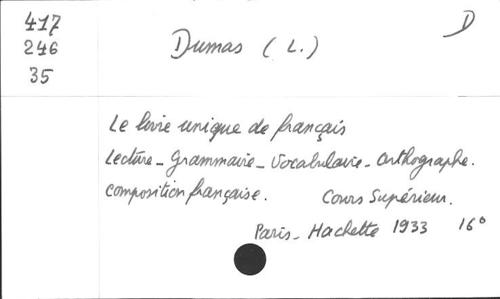 417
246
35
Dumas (L.)
D
Le livre unique de français
Lecture - Grammaire - Vocabulaire - Orthographe.
Composition française. Cours Supérieur.
Paris - Hachette 1933 16°